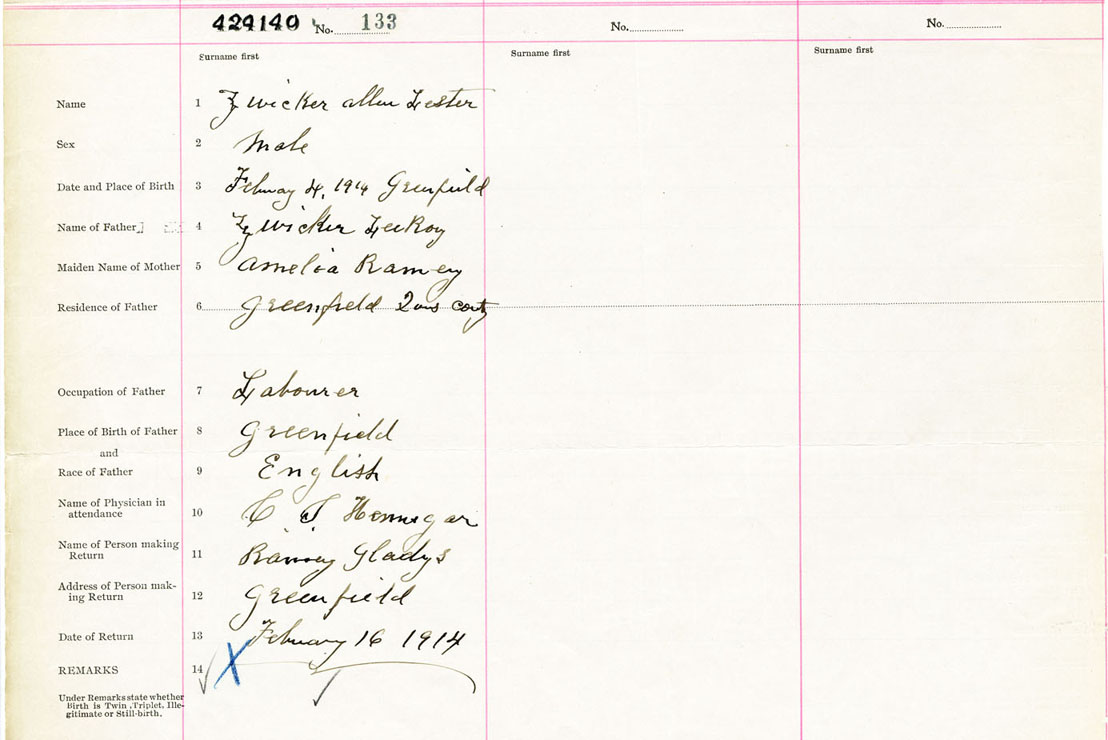 424140 No. 133 No. No.
Surname first Surname first Surname first
Name 1 Zwicker allen Lester
Sex 2 Male
Date and Place of Birth 3 Februay 4, 1914 Greenfield
Name of Father 4 Zwicker LeeRoy
Maiden Name of Mother 5 Amelia Ramey
Residence of Father 6 Greenfield Qons conty
Occupation of Father 7 Labourer
Place of Birth of Father 8 Greenfield
and
Race of Father 9 English
Name of Physician in
attendance 10 C T Hennigar
Name of Person making
Return 11 Ramey Gladys
Address of Person mak-
ing Return 12 Greenfield
Date of Return 13 February 16 1914
REMARKS 14 X
Under Remarks state whether
Birth is Twin, Triplet, Ille-
gitimate or Still-birth.